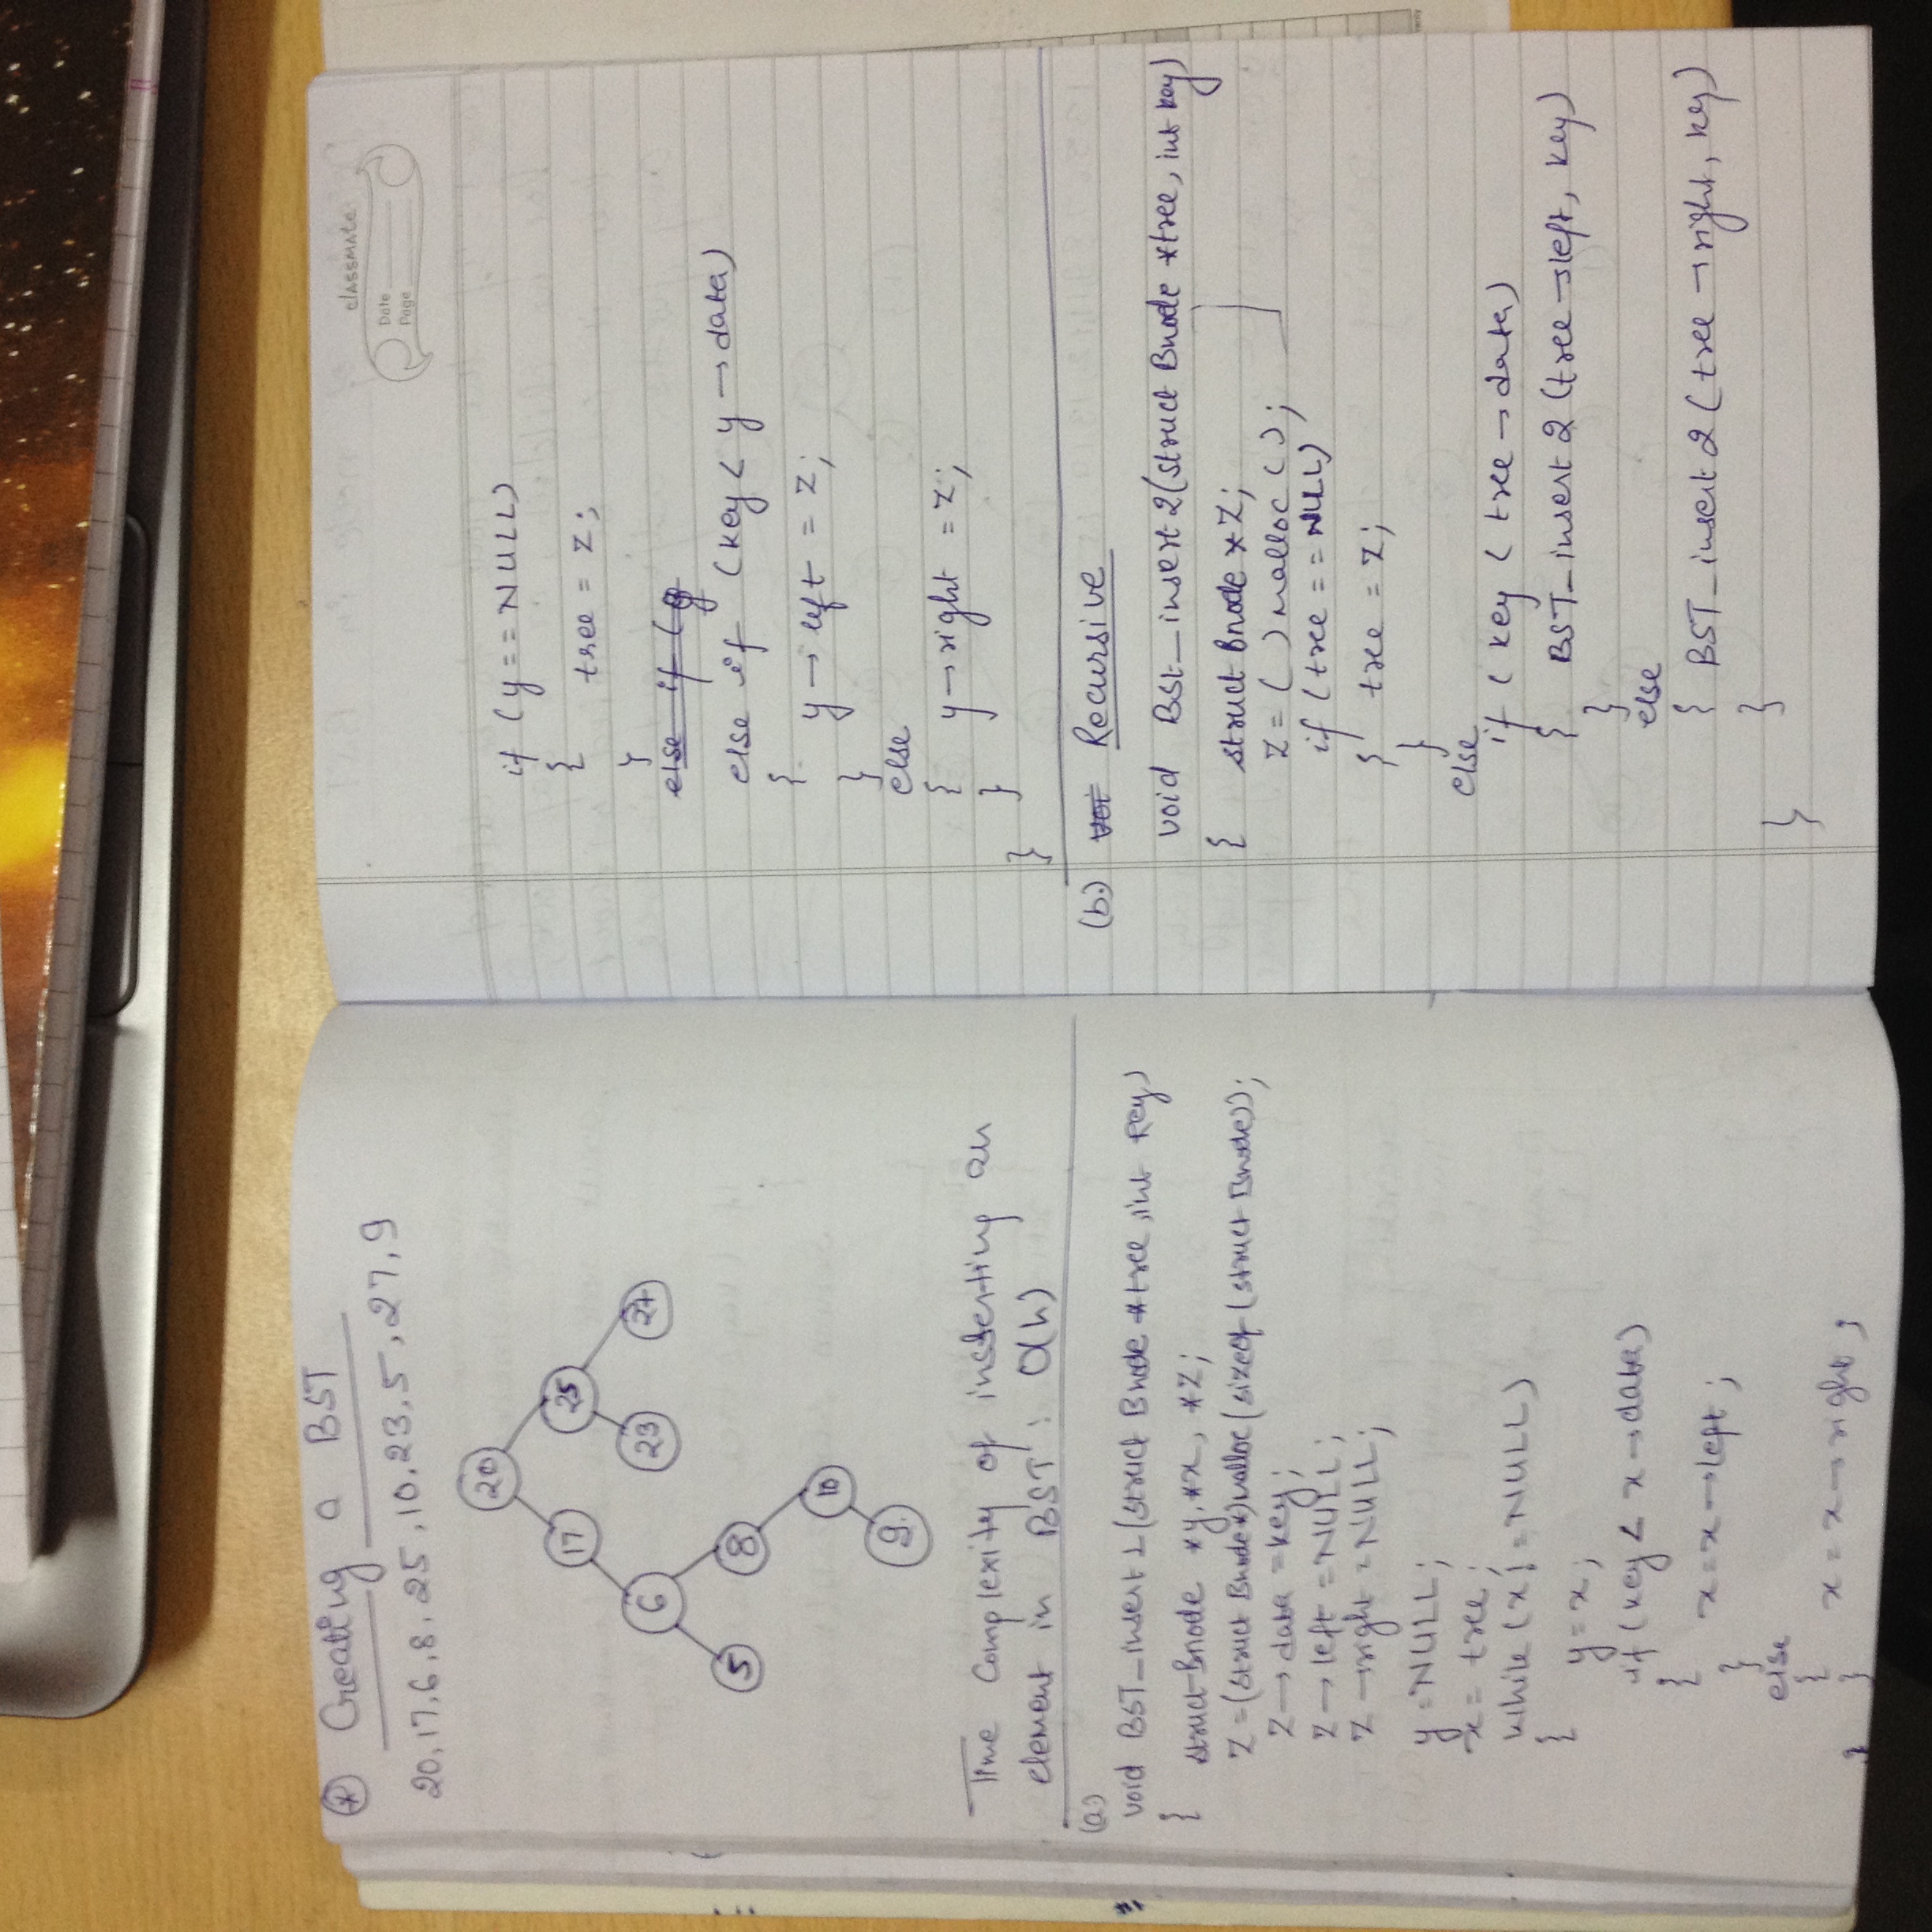 * Creating a BST
20, 17, 6, 8, 25, 10, 23, 5, 27, 9
20
17
25
6
23
27
5
8
10
9
Time Complexity of inserting an
element in BST : O(h)
(a)
void BST_insert 1 (struct Bnode *tree, int key)
{ struct Bnode *y, *x, *z;
z = (struct Bnode*) malloc (sizeof (struct Bnode));
z → data = key;
z → left = NULL;
z → right = NULL;
y = NULL;
x = tree;
while (x != NULL)
{
y = x;
if (key < x → data)
{
x = x → left ;
}
else
{
x = x → right ;
}
}
classmate
Date
Page
if (y == NULL)
{
tree = z;
}
else if (y
else if (key < y → data)
{
y → left = z;
}
else
{
y → right = z;
}
}
(b.) Recursive
void BST_insert 2 (struct Bnode *tree, int key)
{ struct Bnode *z;
z = ( ) malloc ( );
if (tree == NULL)
{ tree = z;
}
else
if ( key < tree → data)
{ BST_insert 2 (tree → left, key)
}
else
{ BST_insert 2 (tree → right, key)
}
}